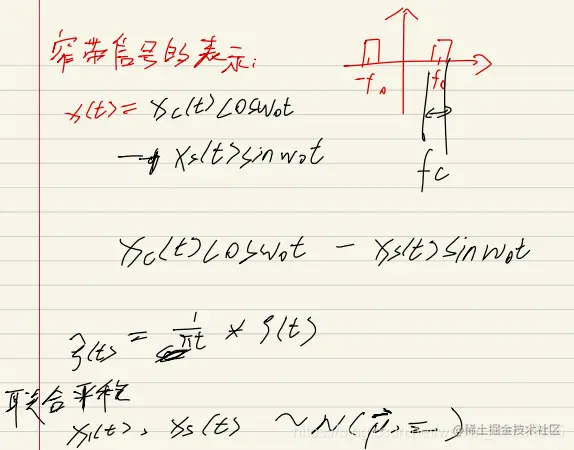 窄带信号的表示:
x(t)= xc(t)cosw₀t
- xs(t)sinw₀t
-f₀
f₀
fc
xc(t)cosw₀t - xs(t)sinw₀t
ξ(t) = 1/πt * ξ(t)
联合平稳
xc(t), xs(t) ~N(μ⃗,
@稀土掘金技术社区